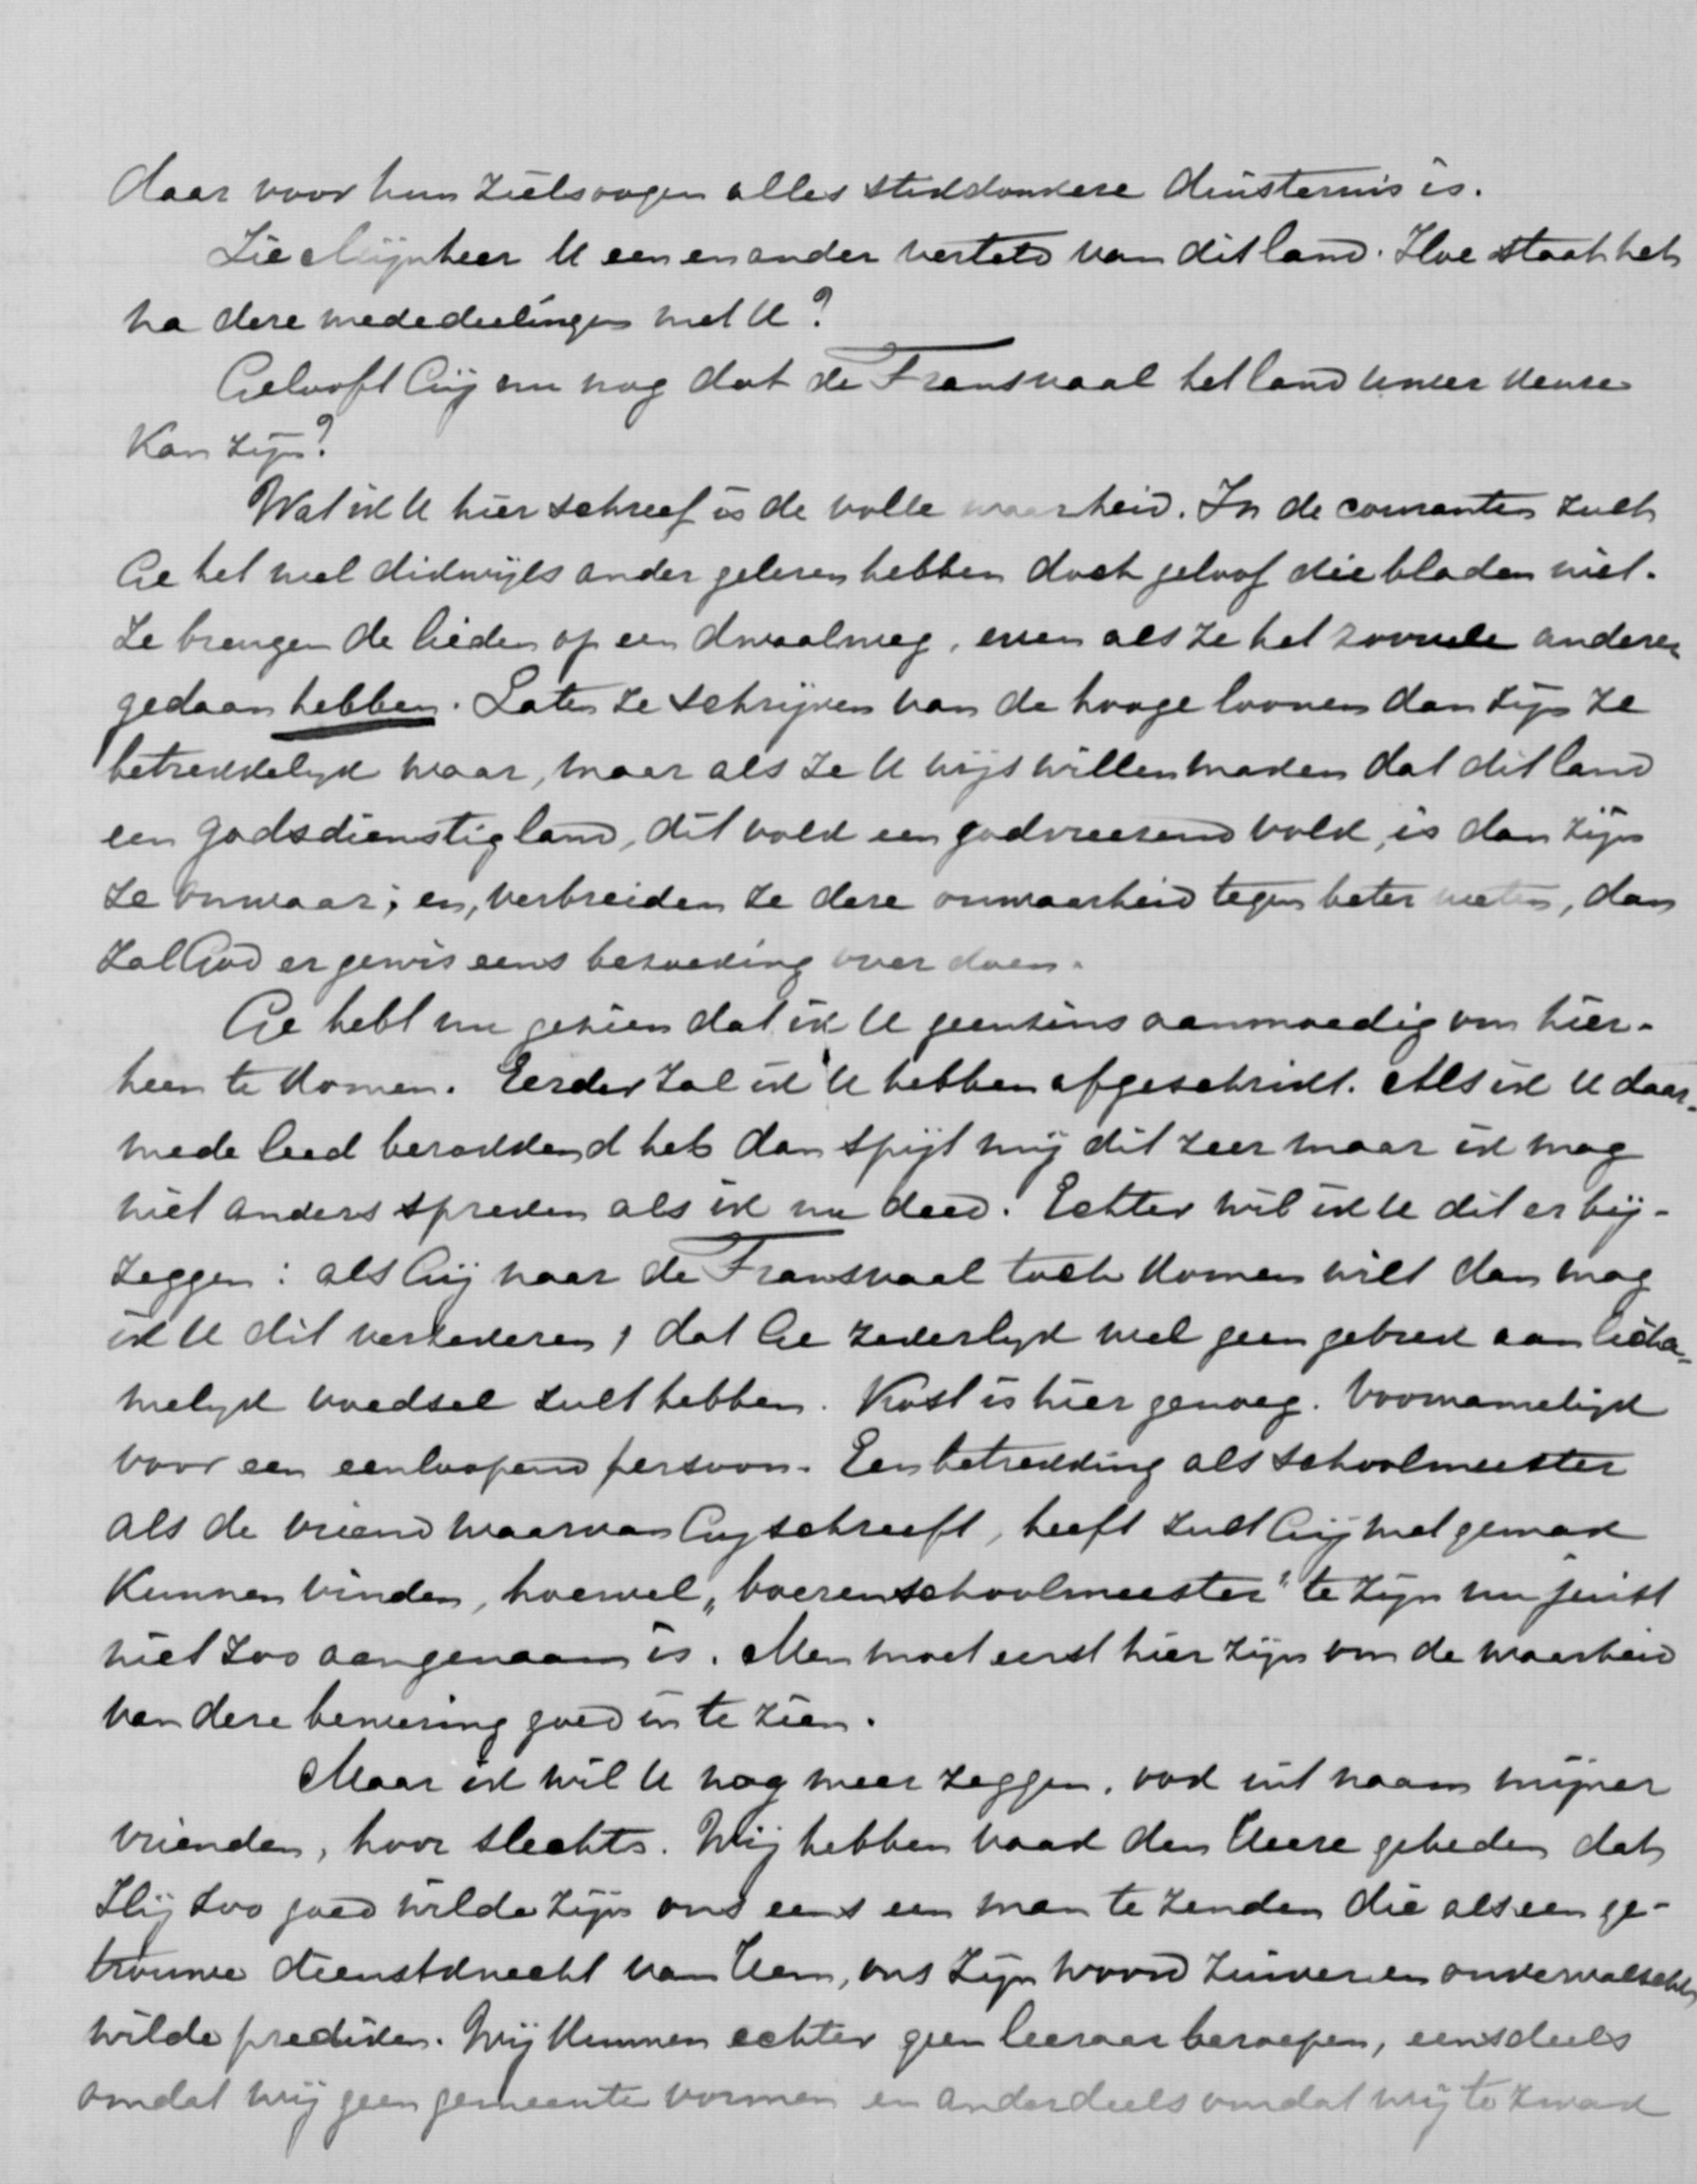 daar voor hun zielsoogen alles stikdonkere duisternis is.
Zie Mijnheer U een en ander verteld van dit land. Hoe staat het
na deze mededeelingen met U?
Gelooft Gij nu nog dat de Transvaal het land Uwer keuze
kan zijn?
Wat ik U hier schreef is de volle waarheid. In de couranten zult
Ge het wel dikwijls ander gelezen hebben doch geloof die bladen niet.
Ze brengen de lieden op een dwaalweg, even als ze het zoovele anderen
gedaan hebben. Laten ze schrijven van de hooge loonen dan zijn ze
betrekkelijk waar, maar als ze U wijs willen maken dat dit land
een godsdienstig land, dit volk een godvreezend volk, is dan zijn
ze onwaar; en, verbreiden ze deze onwaarheid tegen beter weten, dan
zal God er gewis eens bezoeking over doen.
Ge hebt nu gezien dat ik U geenzins aanmoedig om hier-
heen te komen. Eerder zal ik U hebben afgeschrikt. Als ik U daar-
mede leed berokkend heb dan spijt mij dit zeer maar ik mag
niet anders spreken als ik nu deed. Echter wil ik U dit er bij-
zeggen: als Gij naar de Transvaal toch komen wilt dan mag
ik U dit verzekeren, dat Ge zekerlijk wel geen gebrek aan licha-
melijk voedsel zult hebben. Kost is hier genoeg. Voornamelijk
voor een eenloopend persoon. Een betrekking als schoolmeester
als de vriend waarvan Gij schreeft, heeft zult Gij met gemak
kunnen vinden, hoewel „boerenschoolmeester" te zijn nu juist
niet zoo aangenaam is. Men moet eerst hier zijn om de waarheid
van deze bewering goed in te zien.
Maar ik wil U nog meer zeggen, ook uit naam mijner
vrienden, hoor slechts. Wij hebben vaak den Heere gebeden dat
Hij zoo goed wilde zijn ons eens een man te zenden die als een ge-
trouwe dienstknecht van Hem, ons Zijn woord zuiver en onvervalscht
wilde prediken. Wij kunnen echter geen leeraar beroepen, eensdeels
omdat wij geen gemeente vormen en anderdeels omdat wij te zwak